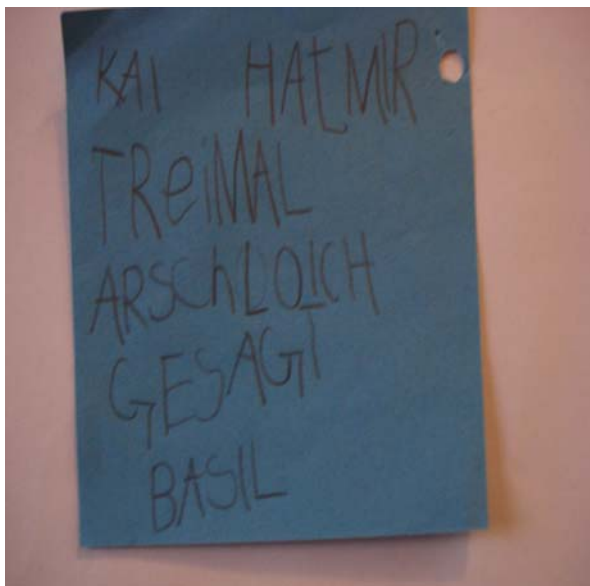 KAI HAt MIR
TReiMAL
ARSChLOICH
GESAGT
BASIL